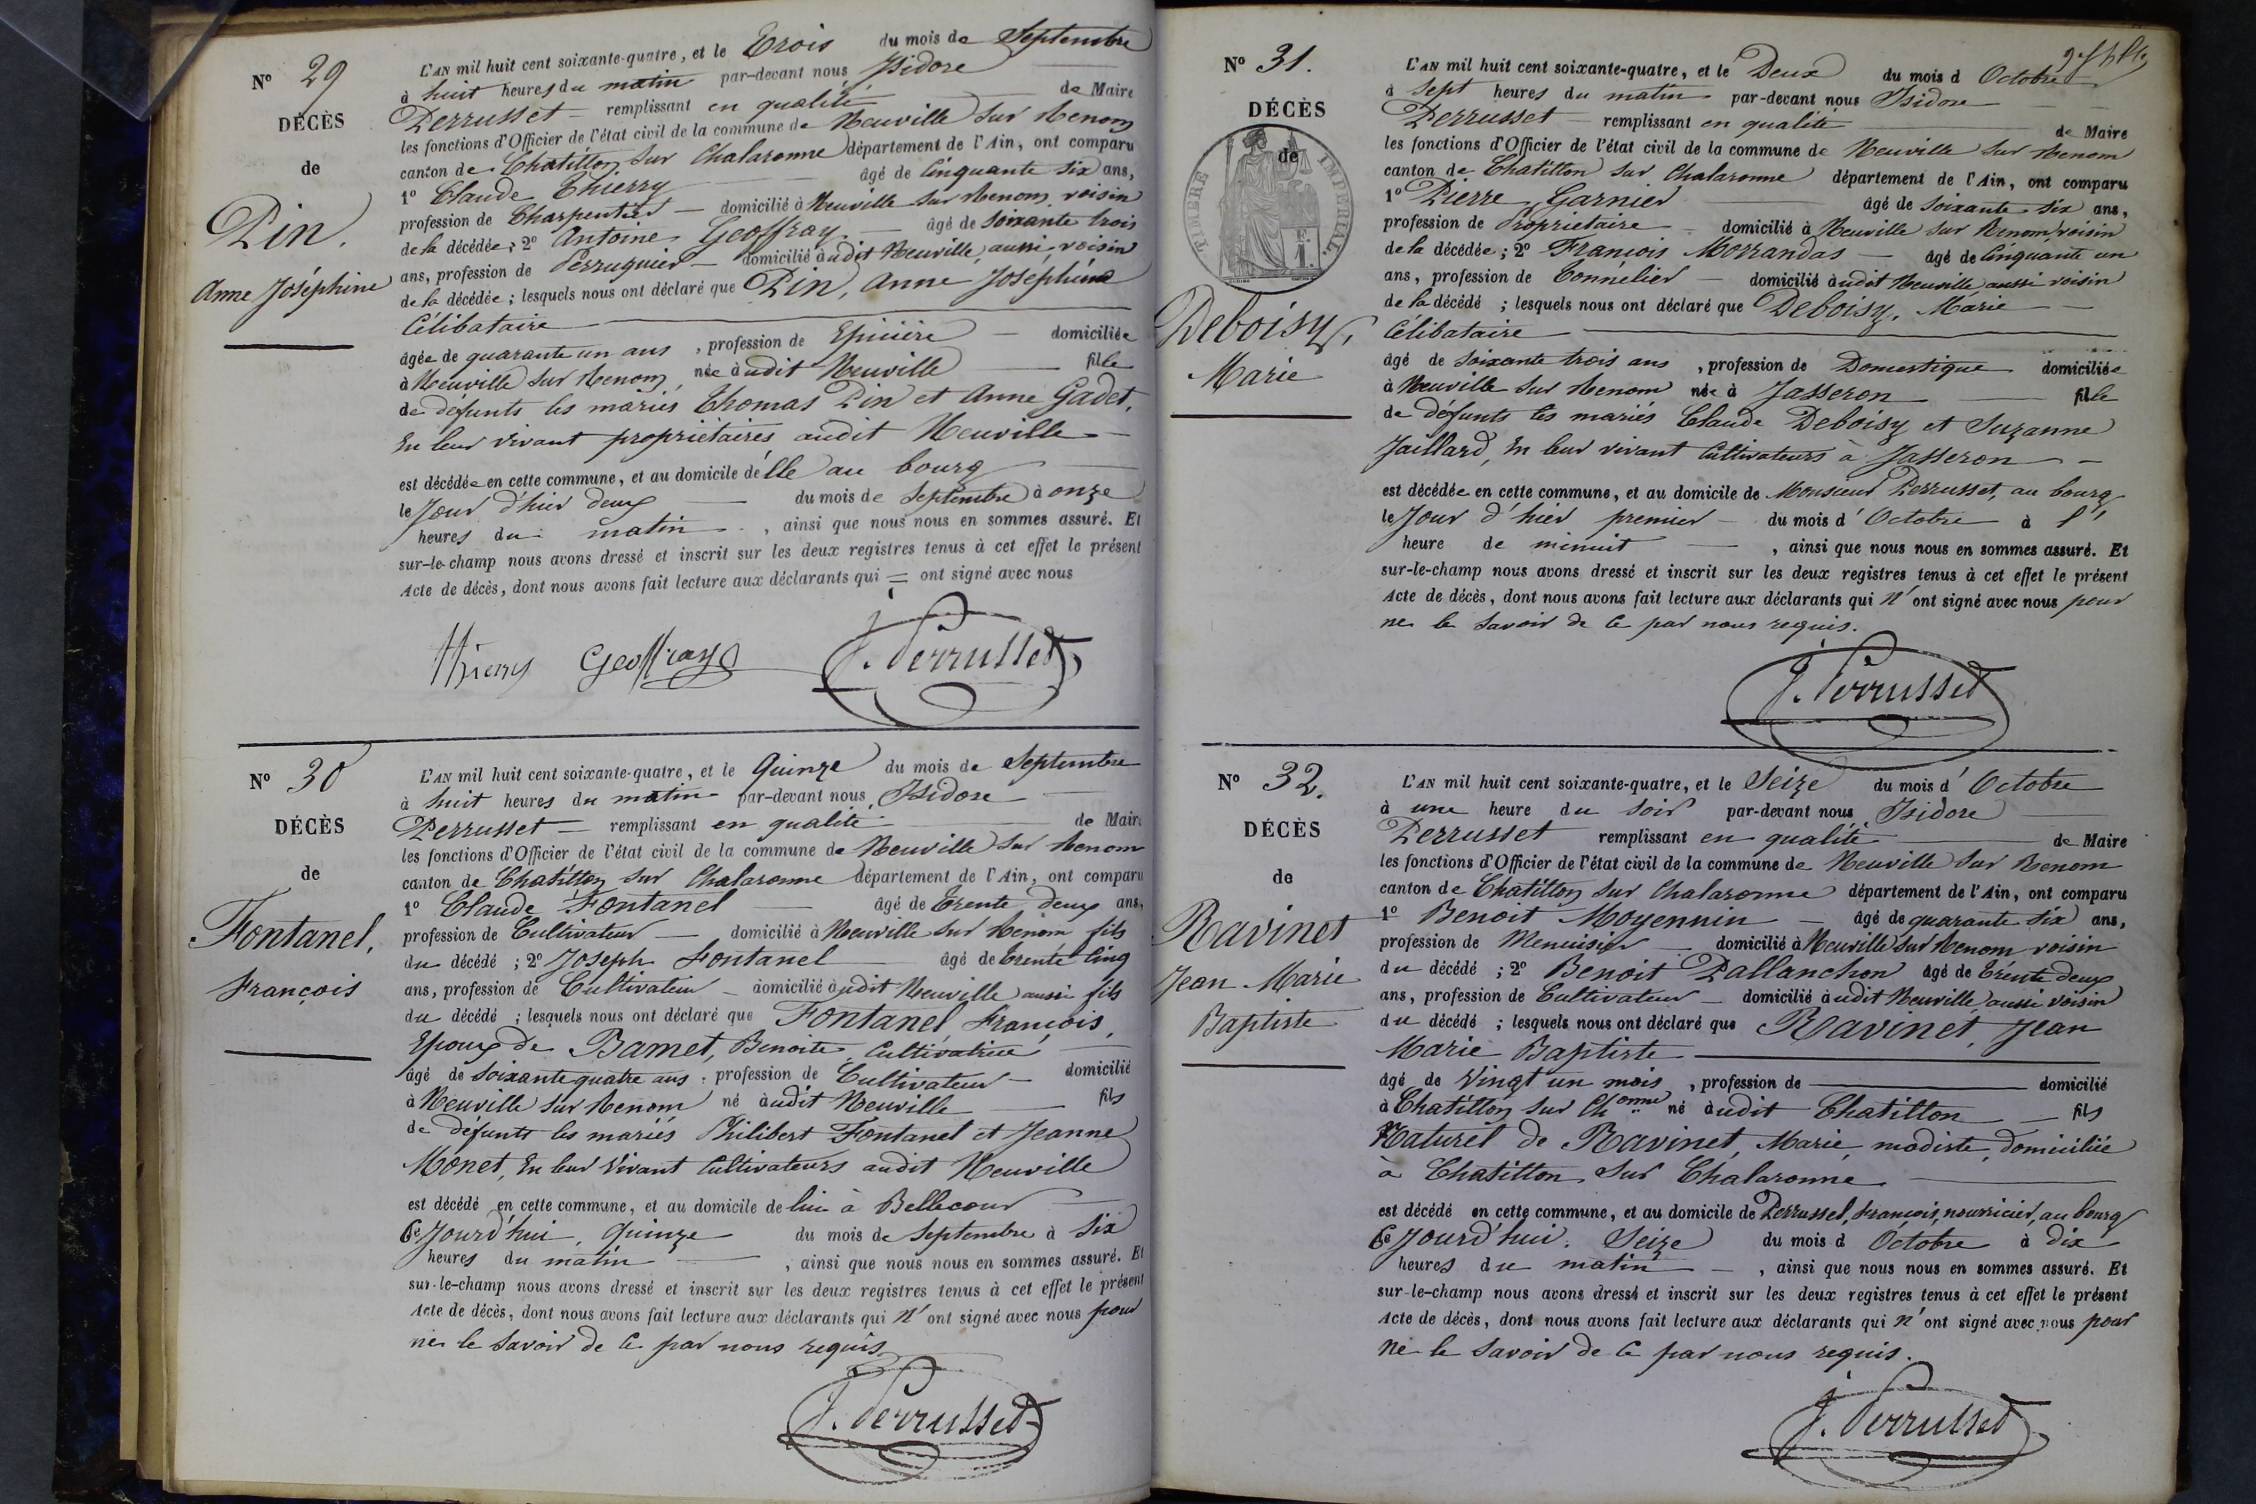 N° 29
DÉCÈS
de
Pin,
Anne Joséphine
L'AN mil huit cent soixante-quatre, et le Trois du mois de Septembre
à huit heures du matin par-devant nous Isidore
Perrusset remplissant en qualité de Maire
les fonctions d'Officier de l'état civil de la commune de Neuville sur Renom
canton de Chatillon sur Chalaronne département de l'Ain, ont comparu
1° Claude Thierry âgé de Cinquante six ans,
profession de Charpentier domicilié à Neuville sur Renom, voisin
de la décédée ; 2° Antoine Geoffray âgé de soixante trois
ans, profession de Perruquier domicilié audit Neuville, aussi voisin
de la décédée ; lesquels nous ont déclaré que Pin, Anne Joséphine
Célibataire
âgée de quarante un ans, profession de Epicière domiciliée
à Neuville sur Renom, née audit Neuville fille
de défunts les mariés Thomas Pin et Anne Gadet,
En leur vivant propriétaires audit Neuville
est décédée en cette commune, et au domicile d'elle au bourg
le Jour d'hier deux du mois de Septembre à onze
heures du matin, ainsi que nous nous en sommes assuré. Et
sur-le-champ nous avons dressé et inscrit sur les deux registres tenus à cet effet le présent
Acte de décès, dont nous avons fait lecture aux déclarants qui = ont signé avec nous
Thierry Geoffray J. Perrusset
N° 30
DÉCÈS
de
Fontanel,
François
L'AN mil huit cent soixante-quatre, et le Quinze du mois de Septembre
à huit heures du matin par-devant nous Isidore
Perrusset remplissant en qualité de Maire
les fonctions d'Officier de l'état civil de la commune de Neuville sur Renom
canton de Chatillon sur Chalaronne département de l'Ain, ont comparu
1° Claude Fontanel âgé de Trente deux ans,
profession de Cultivateur domicilié à Neuville sur Renom fils
du décédé ; 2° Joseph Fontanel âgé de trente cinq
ans, profession de Cultivateur domicilié audit Neuville aussi fils
du décédé ; lesquels nous ont déclaré que Fontanel François,
Epoux de Bamet, Benoite, Cultivatrice
âgé de soixante quatre ans, profession de Cultivateur domicilié
à Neuville sur Renom né audit Neuville fils
de défunts les mariés Philibert Fontanel et Jeanne
Monet, En leur vivant Cultivateurs audit Neuville
est décédé en cette commune, et au domicile de lui à Bellecour
Ce Jourd'hui, quinze du mois de Septembre à Six
heures du matin, ainsi que nous nous en sommes assuré. Et
sur-le-champ nous avons dressé et inscrit sur les deux registres tenus à cet effet le présent
Acte de décès, dont nous avons fait lecture aux déclarants qui n'ont signé avec nous pour
ne le savoir de ce par nous requis.
J. Perrusset
N° 31.
DÉCÈS
de
TIMBRE IMPÉRIAL
Deboisy,
Marie
L'AN mil huit cent soixante-quatre, et le Deux du mois d Octobre
à sept heures du matin par-devant nous Isidore
Perrusset remplissant en qualité de Maire
les fonctions d'Officier de l'état civil de la commune de Neuville sur Renom
canton de Chatillon sur Chalaronne département de l'Ain, ont comparu
1° Pierre Garnier âgé de soixante six ans,
profession de Propriétaire domicilié à Neuville sur Renom, voisin
de la décédée ; 2° François Morrandas âgé de Cinquante un
ans, profession de Tonnélier domicilié audit Neuville aussi voisin
de la décédé ; lesquels nous ont déclaré que Deboisy, Marie
Célibataire
âgé de soixante trois ans, profession de Domestique domiciliée
à Neuville sur Renom née à Jasseron fille
de défunts les mariés Claude Deboisy et Suzanne
Jaillard, En leur vivant Cultivateurs à Jasseron
est décédée en cette commune, et au domicile de Monsieur Perrusset, au bourg
le Jour d'hier premier du mois d'Octobre à l'
heure de minuit, ainsi que nous nous en sommes assuré. Et
sur-le-champ nous avons dressé et inscrit sur les deux registres tenus à cet effet le présent
Acte de décès, dont nous avons fait lecture aux déclarants qui n'ont signé avec nous pour
ne le savoir de ce par nous requis.
J. Perrusset
N° 32.
DÉCÈS
de
Ravinet
Jean Marie
Baptiste
L'AN mil huit cent soixante-quatre, et le Seize du mois d'Octobre
à une heure du soir par-devant nous Isidore
Perrusset remplissant en qualité de Maire
les fonctions d'Officier de l'état civil de la commune de Neuville sur Renom
canton de Chatillon sur Chalaronne département de l'Ain, ont comparu
1° Benoit Moyennin âgé de quarante six ans,
profession de Menuisier domicilié à Neuville sur Renom voisin
du décédé ; 2° Benoit Pallanchon âgé de trente deux
ans, profession de Cultivateur domicilié audit Neuville, aussi voisin
du décédé ; lesquels nous ont déclaré que Ravinet, Jean
Marie Baptiste
âgé de Vingt un mois, profession de domicilié
à Chatillon sur Chonne né audit Chatillon fils
Naturel de Ravinet, Marie, modiste, domiciliée
à Chatillon sur Chalaronne
est décédé en cette commune, et au domicile de Perrussel, François, nourricier, au bourg
Ce Jourd'hui. Seize du mois d Octobre à dix
heures du matin, ainsi que nous nous en sommes assuré. Et
sur-le-champ nous avons dressé et inscrit sur les deux registres tenus à cet effet le présent
Acte de décès, dont nous avons fait lecture aux déclarants qui n'ont signé avec nous pour
ne le savoir de ce par nous requis.
J. Perrusset